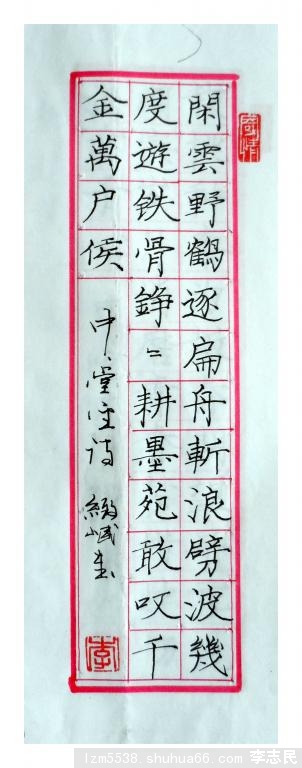 閑雲野鶴逐扁舟斬浪劈波幾
度遊铁骨錚〻耕墨苑敢叹千
金萬户侯
中堂 诗
李
lzm5538.shuhua66.com 李志民